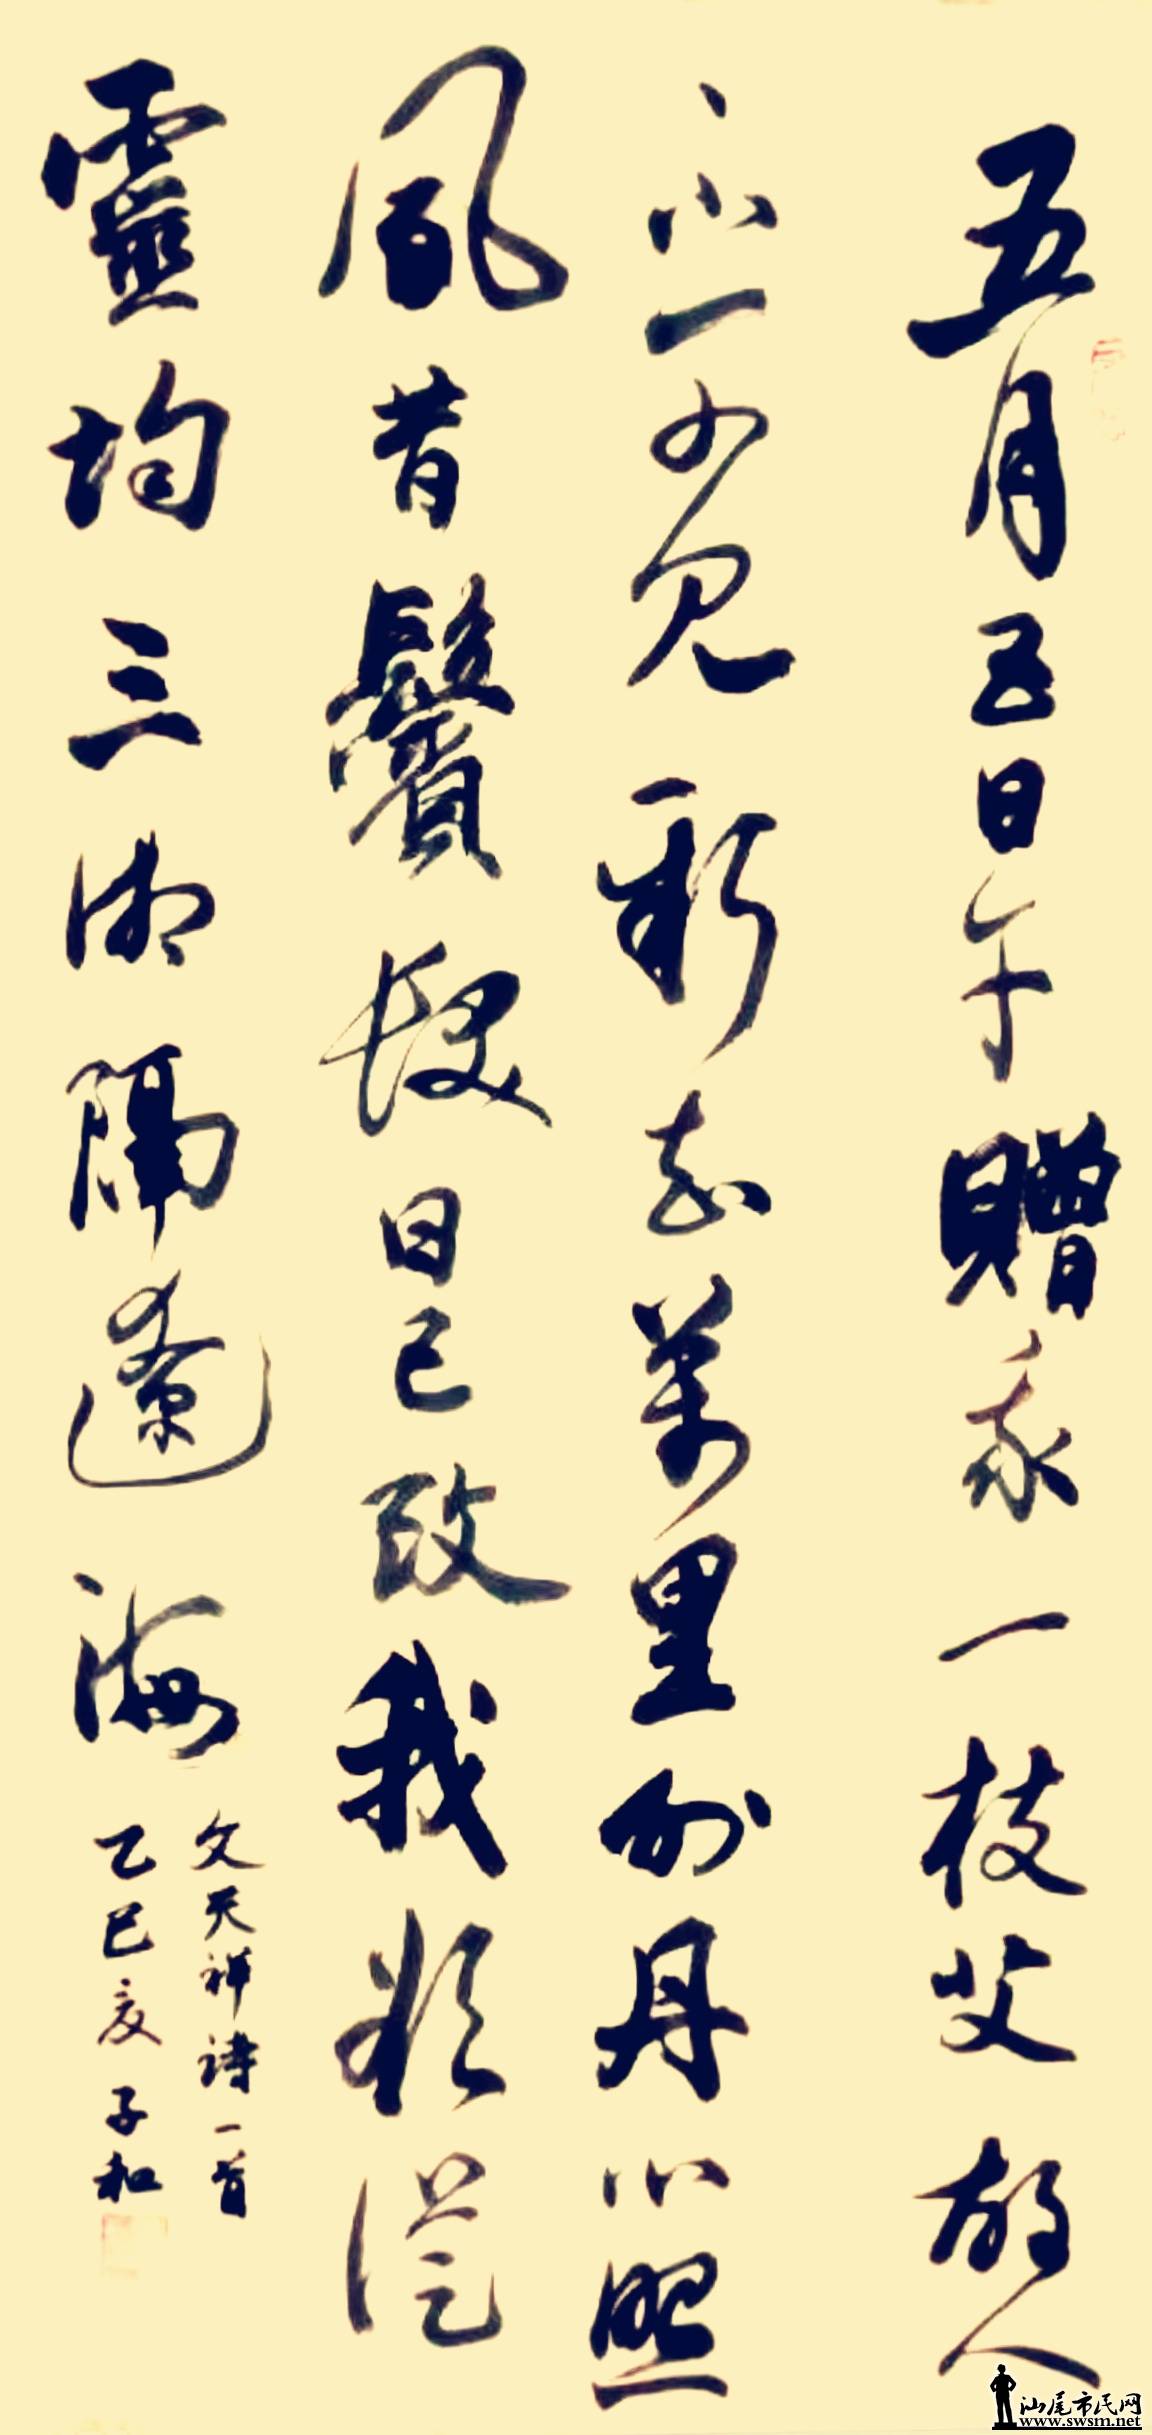 五月五日午贈我一枝艾故人
不可見新知萬里外丹心照
風昔鬢髮日已改我欲從
靈均三湘隔遼海
文天祥詩一首
乙巳夏子和
汕尾市民网
www.swsm.net